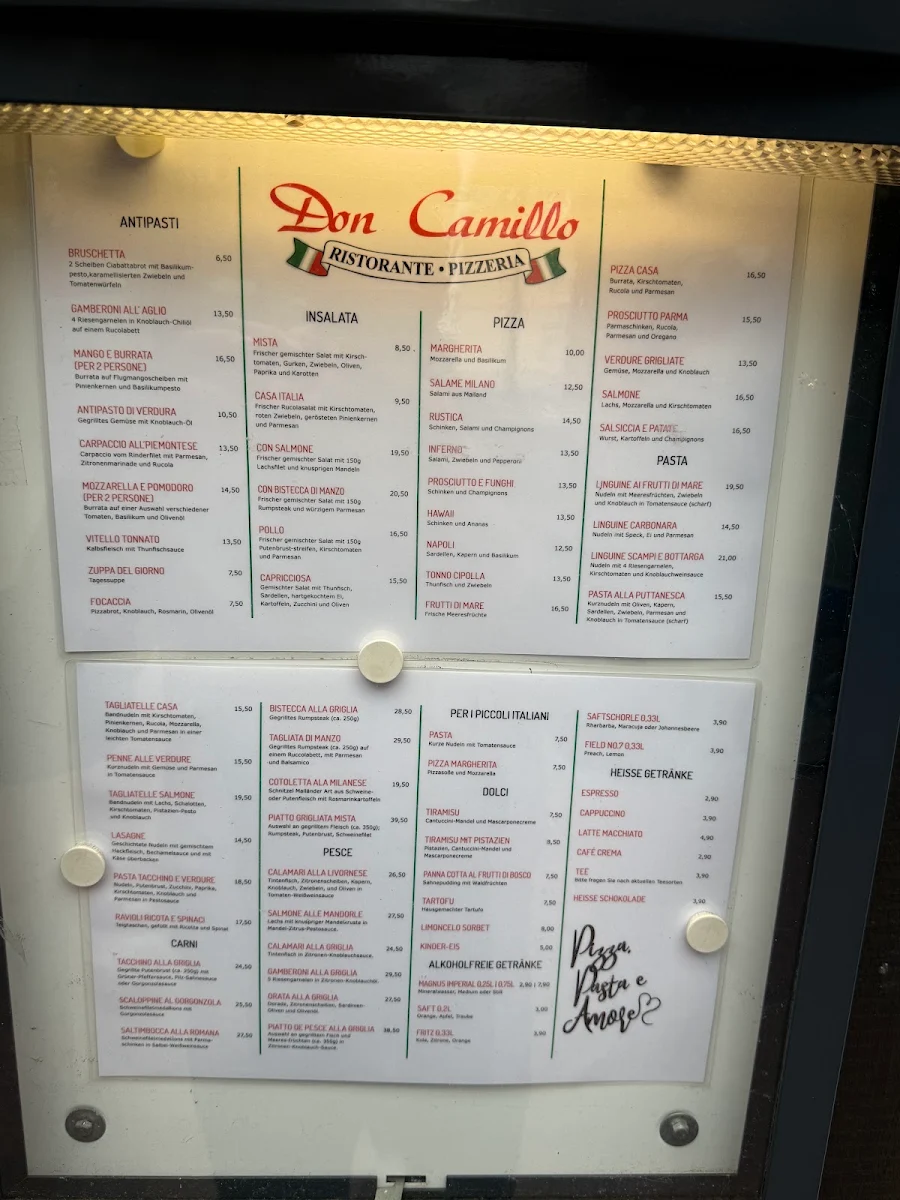 Don Camillo
RISTORANTE • PIZZERIA
ANTIPASTI
BRUSCHETTA 6,50
2 Scheiben Ciabattabrot mit Basilikum-
pesto,karamellisierten Zwiebeln und
Tomatenwürfeln
GAMBERONI ALL' AGLIO 13,50
4 Riesengarnelen in Knoblauch-Chiliöl
auf einem Rucolabett
MANGO E BURRATA 16,50
(PER 2 PERSONE)
Burrata auf Flugmangoscheiben mit
Pinienkernen und Basilikumpesto
ANTIPASTO DI VERDURA 10,50
Gegrilltes Gemüse mit Knoblauch-Öl
CARPACCIO ALL'PIEMONTESE 13,50
Carpaccio vom Rinderfilet mit Parmesan,
Zitronenmarinade und Rucola
MOZZARELLA E POMODORO 14,50
(PER 2 PERSONE)
Burrata auf einer Auswahl verschiedener
Tomaten, Basilikum und Olivenöl
VITELLO TONNATO 13,50
Kalbsfleisch mit Thunfischsauce
ZUPPA DEL GIORNO 7,50
Tagessuppe
FOCACCIA 7,50
Pizzabrot, Knoblauch, Rosmarin, Olivenöl
INSALATA
MISTA 8,50
Frischer gemischter Salat mit Kirsch-
tomaten, Gurken, Zwiebeln, Oliven,
Paprika und Karotten
CASA ITALIA 9,50
Frischer Rucolasalat mit Kirschtomaten,
roten Zwiebeln, gerösteten Pinienkernen
und Parmesan
CON SALMONE 19,50
Frischer gemischter Salat mit 150g
Lachsfilet und knusprigen Mandeln
CON BISTECCA DI MANZO 20,50
Frischer gemischter Salat mit 150g
Rumpsteak und würzigem Parmesan
POLLO 16,50
Frischer gemischter Salat mit 150g
Putenbrust-streifen, Kirschtomaten
und Parmesan
CAPRICCIOSA 15,50
Gemischter Salat mit Thunfisch,
Sardellen, hartgekochtem Ei,
Kartoffeln, Zucchini und Oliven
PIZZA
MARGHERITA 10,00
Mozzarella und Basilikum
SALAME MILANO 12,50
Salami aus Mailand
RUSTICA 14,50
Schinken, Salami und Champignons
INFERNO 13,50
Salami, Zwiebeln und Pepperoni
PROSCIUTTO E FUNGHI 13,50
Schinken und Champignons
HAWAII 13,50
Schinken und Ananas
NAPOLI 12,50
Sardellen, Kapern und Basilikum
TONNO CIPOLLA 13,50
Thunfisch und Zwiebeln
FRUTTI DI MARE 16,50
Frische Meeresfrüchte
PIZZA CASA 16,50
Burrata, Kirschtomaten,
Rucola und Parmesan
PROSCIUTTO PARMA 15,50
Parmaschinken, Rucola,
Parmesan und Oregano
VERDURE GRIGLIATE 13,50
Gemüse, Mozzarella und Knoblauch
SALMONE 16,50
Lachs, Mozzarella und Kirschtomaten
SALSICCIA E PATATE 16,50
Wurst, Kartoffeln und Champignons
PASTA
LINGUINE AI FRUTTI DI MARE 19,50
Nudeln mit Meeresfrüchten, Zwiebeln
und Knoblauch in Tomatensauce (scharf)
LINGUINE CARBONARA 14,50
Nudeln mit Speck, Ei und Parmesan
LINGUINE SCAMPI E BOTTARGA 21,00
Nudeln mit 4 Riesengarnelen,
Kirschtomaten und Knoblauchweinsauce
PASTA ALLA PUTTANESCA 15,50
Kurznudeln mit Oliven, Kapern,
Sardellen, Zwiebeln, Parmesan und
Knoblauch in Tomatensauce (scharf)
TAGLIATELLE CASA 15,50
Bandnudeln mit Kirschtomaten,
Pinienkernen, Rucola, Mozzarella,
Knoblauch und Parmesan in einer
leichten Tomatensauce
PENNE ALLE VERDURE 15,50
Kurznudeln mit Gemüse und Parmesan
in Tomatensauce
TAGLIATELLE SALMONE 19,50
Bandnudeln mit Lachs, Schalotten,
Kirschtomaten, Pistazien-Pesto
und Knoblauch
LASAGNE 14,50
Geschichtete Nudeln mit gemischtem
Hackfleisch, Bechamelsauce und mit
Käse überbacken
PASTA TACCHINO E VERDURE 18,50
Nudeln, Putenbrust, Zucchini, Paprika,
Kirschtomaten, Knoblauch und
Parmesan in Pestosauce
RAVIOLI RICOTA E SPINACI 17,50
Teigtaschen, gefüllt mit Ricotta und Spinat
CARNI
TACCHINO ALLA GRIGLIA 24,50
Gegrillte Putenbrust (ca. 250g) mit
Grüner-Pfeffersauce, Pilz-Sahnesauce
oder Gorgonzolasauce
SCALOPPINE AL GORGONZOLA 25,50
Schweinefiletmedaillons mit
Gorgonzolasauce
SALTIMBOCCA ALLA ROMANA 27,50
Schweinefiletmedaillons mit Parma-
schinken in Salbei-Weißweinsauce
BISTECCA ALLA GRIGLIA 28,50
Gegrilltes Rumpsteak (ca. 250g)
TAGLIATA DI MANZO 29,50
Gegrilltes Rumpsteak (ca. 250g) auf
einem Ruccolabett, mit Parmesan
und Balsamico
COTOLETTA ALA MILANESE 19,50
Schnitzel Mailänder Art aus Schweine-
oder Putenfleisch mit Rosmarinkartoffeln
PIATTO GRIGLIATA MISTA 39,50
Auswahl an gegrilltem Fleisch (ca. 350g);
Rumpsteak, Putenbrust, Schweinefilet
PESCE
CALAMARI ALLA LIVORNESE 26,50
Tintenfisch, Zitronenscheiben, Kapern,
Knoblauch, Zwiebeln, und Oliven in
Tomaten-Weißweinsauce
SALMONE ALLE MANDORLE 27,50
Lachs mit knuspriger Mandelkruste in
Mandel-Zitrus-Pestosauce.
CALAMARI ALLA GRIGLIA 24,50
Tintenfisch in Zitronen-Knoblauchsauce.
GAMBERONI ALLA GRIGLIA 29,50
5 Riesengarnelen in Zitronen-Knoblauchöl
ORATA ALLA GRIGLIA 27,50
Dorade, Zitronenscheiben, Sardinen-
Oliven und Olivenöl.
PIATTO DE PESCE ALLA GRIGLIA 38,50
Auswahl an gegrilltem Fisch und
Meeres-früchten (ca. 350g) in
Zitronen-Knoblauch-Sauce.
PER I PICCOLI ITALIANI
PASTA 7,50
Kurze Nudeln mit Tomatensauce
PIZZA MARGHERITA 7,50
Pizzasoße und Mozzarella
DOLCI
TIRAMISU 7,50
Cantuccini-Mandel und Mascarponecreme
TIRAMISU MIT PISTAZIEN 9,50
Pistazien, Cantuccini-Mandel und
Mascarponecreme
PANNA COTTA AL FRUTTI DI BOSCO 7,50
Sahnepudding mit Waldfrüchten
TARTOFU 7,50
Hausgemachter Tartufo
LIMONCELO SORBET 8,00
KINDER-EIS 5,00
ALKOHOLFREIE GETRÄNKE
MAGNUS IMPERIAL 0,25L | 0,75L 2,80 | 7,90
Mineralwasser, Medium oder Still
SAFT 0,2L 3,00
Orange, Apfel, Traube
FRITZ 0,33L 3,90
Kola, Zitrone, Orange
SAFTSCHORLE 0,33L 3,90
Rharbarba, Maracuja oder Johannesbeere
FIELD NO.7 0,33L 3,90
Preach, Lemon
HEISSE GETRÄNKE
ESPRESSO 2,90
CAPPUCCINO 3,90
LATTE MACCHIATO 4,90
CAFÉ CREMA 2,90
TEE 3,90
Bitte fragen Sie nach aktuellen Teesorten
HEISSE SCHOKOLADE 3,90
Pizza,
Pasta e
Amore